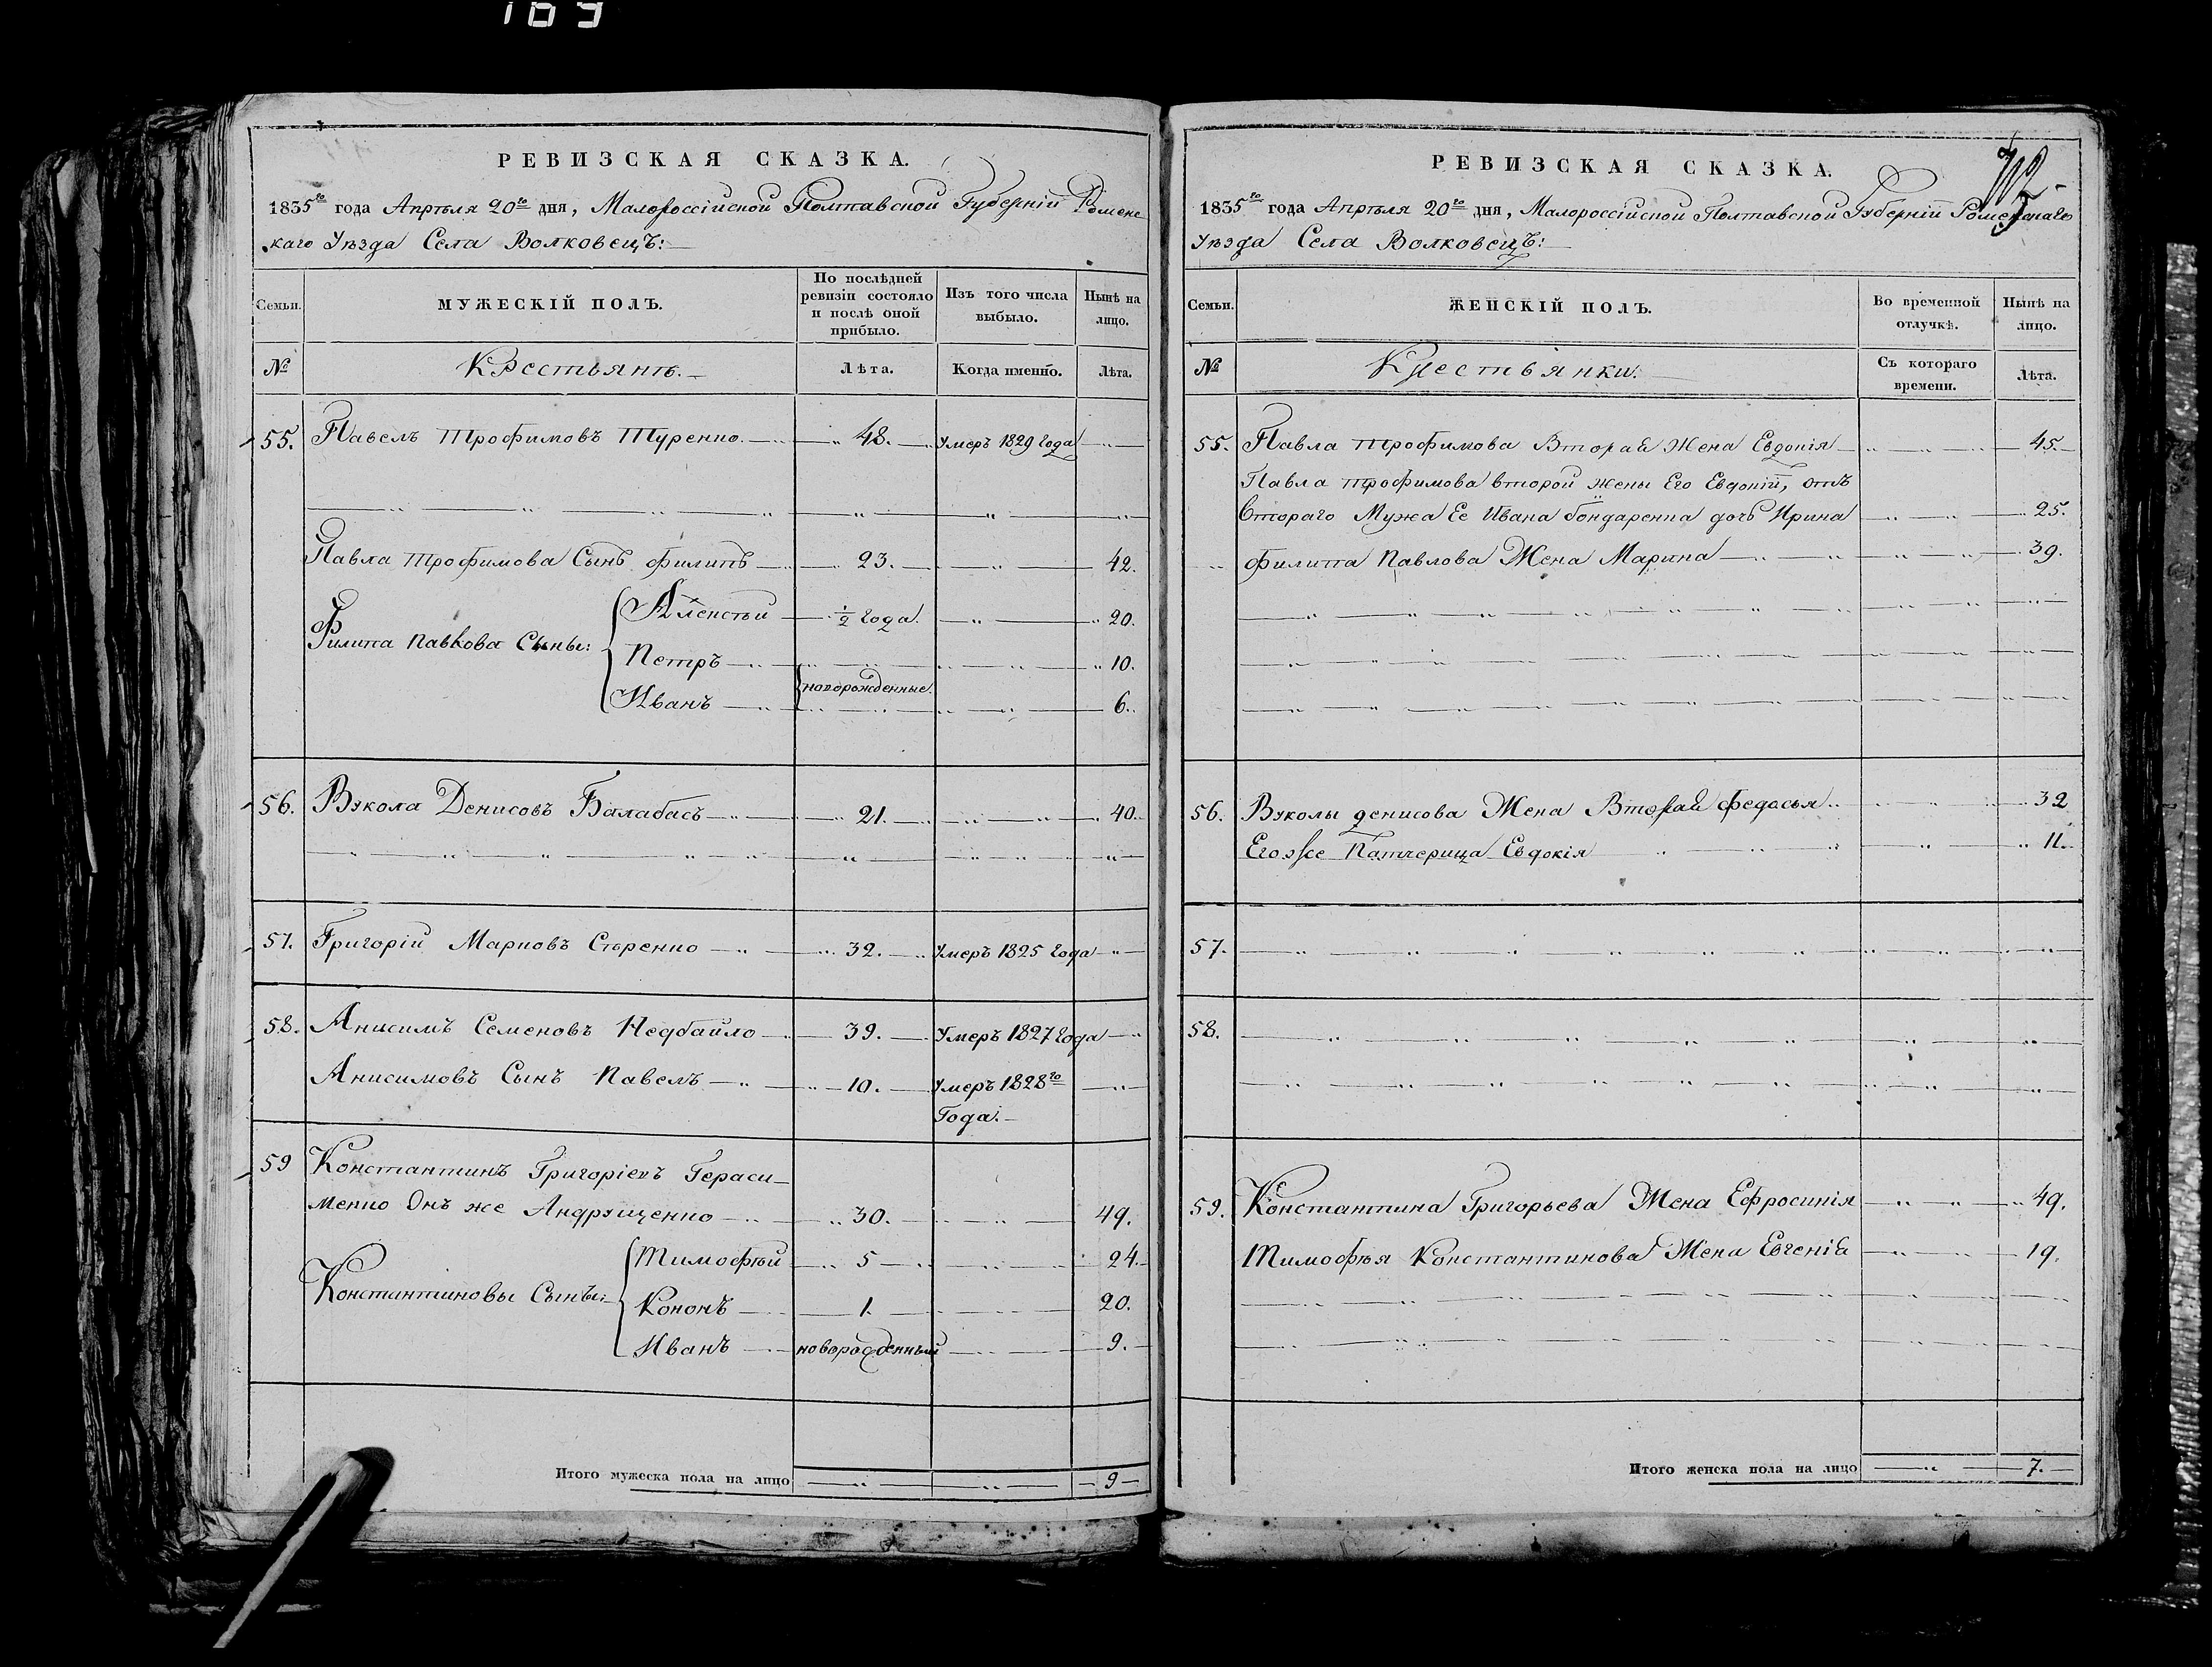 169
РЕВИЗСКАЯ СКАЗКА.
1835го года Апрѣля 20го дня, Малороссійской Полтавской Губерніи Роменс
каго Уѣзда Села Волковецъ:
Семьи.
МУЖЕСКІЙ ПОЛЪ.
По послѣдней ревизіи состояло и послѣ оной прибыло.
Изъ того числа выбыло.
Нынѣ на лицо.
№
Крестьянъ.
Лѣта.
Когда именно.
Лѣта.
55. Павелъ Трофимовъ Туренко. 48. Умеръ 1829 Года
Павла Трофимова Сынъ Филипъ 23. 42.
Филипа Павлова Сыны:
Алексѣй ½ Года. 20.
Петръ 10.
новорожденные.
Иванъ 6.
56. Вукола Денисовъ Балабасъ 21. 40.
57. Григорій Марковъ 32. Умеръ 1825 Года
58. Анисимъ Семеновъ Недбайло 39. Умеръ 1827 Года
Анисимовъ Сынъ Павелъ 10. Умеръ 1828го
Года.
59 Константинъ Григоріевъ Гераси-
менко Онъ же Андрущенко 30. 49.
Константиновы Сыны:
Тимофѣй 5 24.
Кононъ 1. 20.
Иванъ новорожденный 9.
Итого мужеска пола на лицо 9
РЕВИЗСКАЯ СКАЗКА.
1835го года Апрѣля 20го дня, Малороссійской Полтавской Губерніи Роменскаго
Уѣзда Села Волковецъ:
Семьи.
ЖЕНСКІЙ ПОЛЪ.
Во временной отлучкѣ.
Нынѣ на лицо.
№
Крестьянки.
Съ котораго времени.
Лѣта.
55. Павла Трофимова Вторая Жена Евдокія 45.
Павла Трофимова второй жены Его Евдокіи, отъ
Втораго Мужа Ее Ивана Бондаренка дочь Ирина 25.
Филипа Павлова Жена Марина 39.
56. Вуколы Денисова Жена Вторая Федосья 32
Его же Патчерица Евдокія 11.
57.
58.
59. Константина Григорьева Жена Ефросинія 49.
Тимофѣя Константинова Жена Евгенія 19.
Итого женска пола на лицо 7.